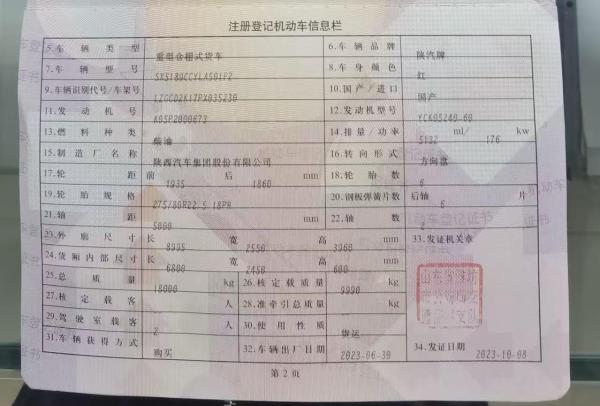 注册登记机动车信息栏
5.车辆类型 重型仓栅式货车 6.车辆品牌 陕汽牌
7.车辆型号 SX5189CCYLA501F2 8.车身颜色 红
9.车辆识别代号/车架号 LZGCD2K17PX035230 10.国产/进口 国产
11.发动机号 K05P2000673 12.发动机型号 YCK05240-60
13.燃料种类 柴油 14.排量/功率 5132 ml/ 176 kw
15.制造厂名称 陕西汽车集团股份有限公司 16.转向形式 方向盘
17.轮距 前 1935 后 1860 mm 18.轮胎数 6
19.轮胎规格 275/80R22.5 18PR 20.钢板弹簧片数 后轴 6 片
21.轴距 5000 mm 22.轴数 2
23.外廓尺寸 长 8995 宽 2550 高 3960 mm 33.发证机关章
24.货厢内部尺寸 长 6800 宽 2450 高 600 mm
25.总质量 18000 kg 26.核定载质量 9990 kg
27.核定载客 人 28.准牵引总质量 kg
29.驾驶室载客 2 人 30.使用性质 货运
31.车辆获得方式 购买 32.车辆出厂日期 2023-06-30 34.发证日期 2023-10-08
第2页